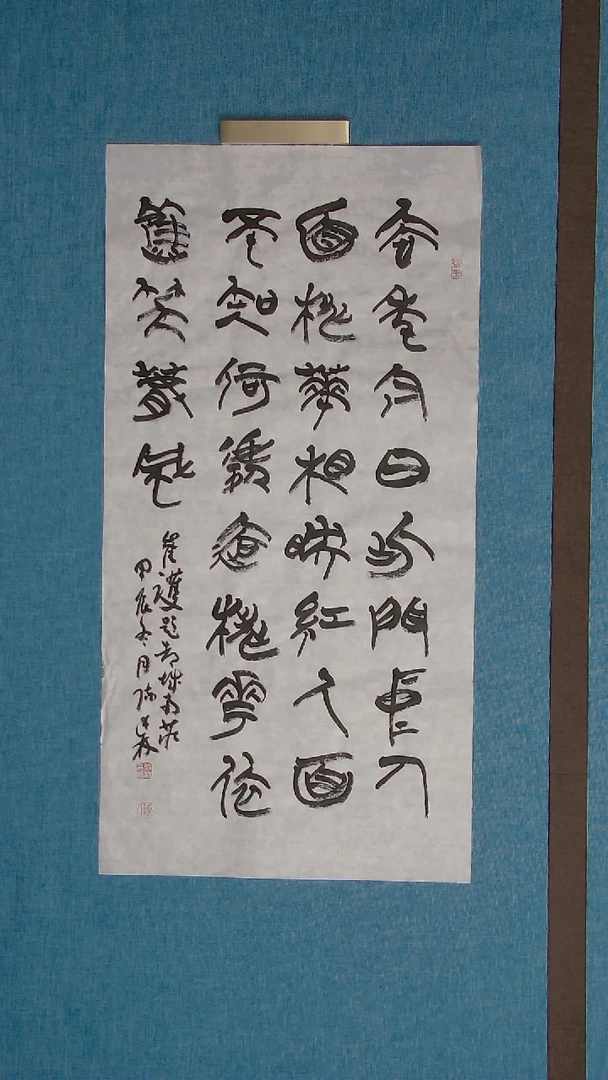 去年今日此門中人
面桃華相映紅人面
不知何處去桃花依
舊笑春風
崔護題都城南莊
甲辰冬月